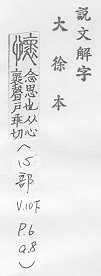 說文解字
大徐本
懷
念思也从心
褱聲戶乖切
(15部
V.10下
P.6
a.8)